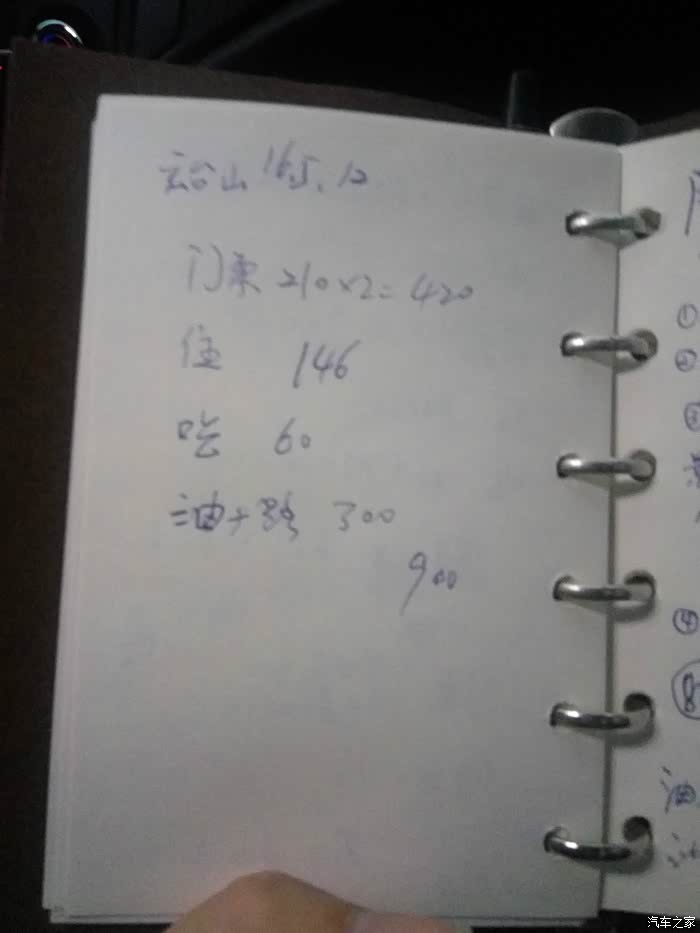 云台山 16.5.12
门票 210×2=420
住 146
吃 60
油+路 300
900
①
②
③
④
油
汽车之家